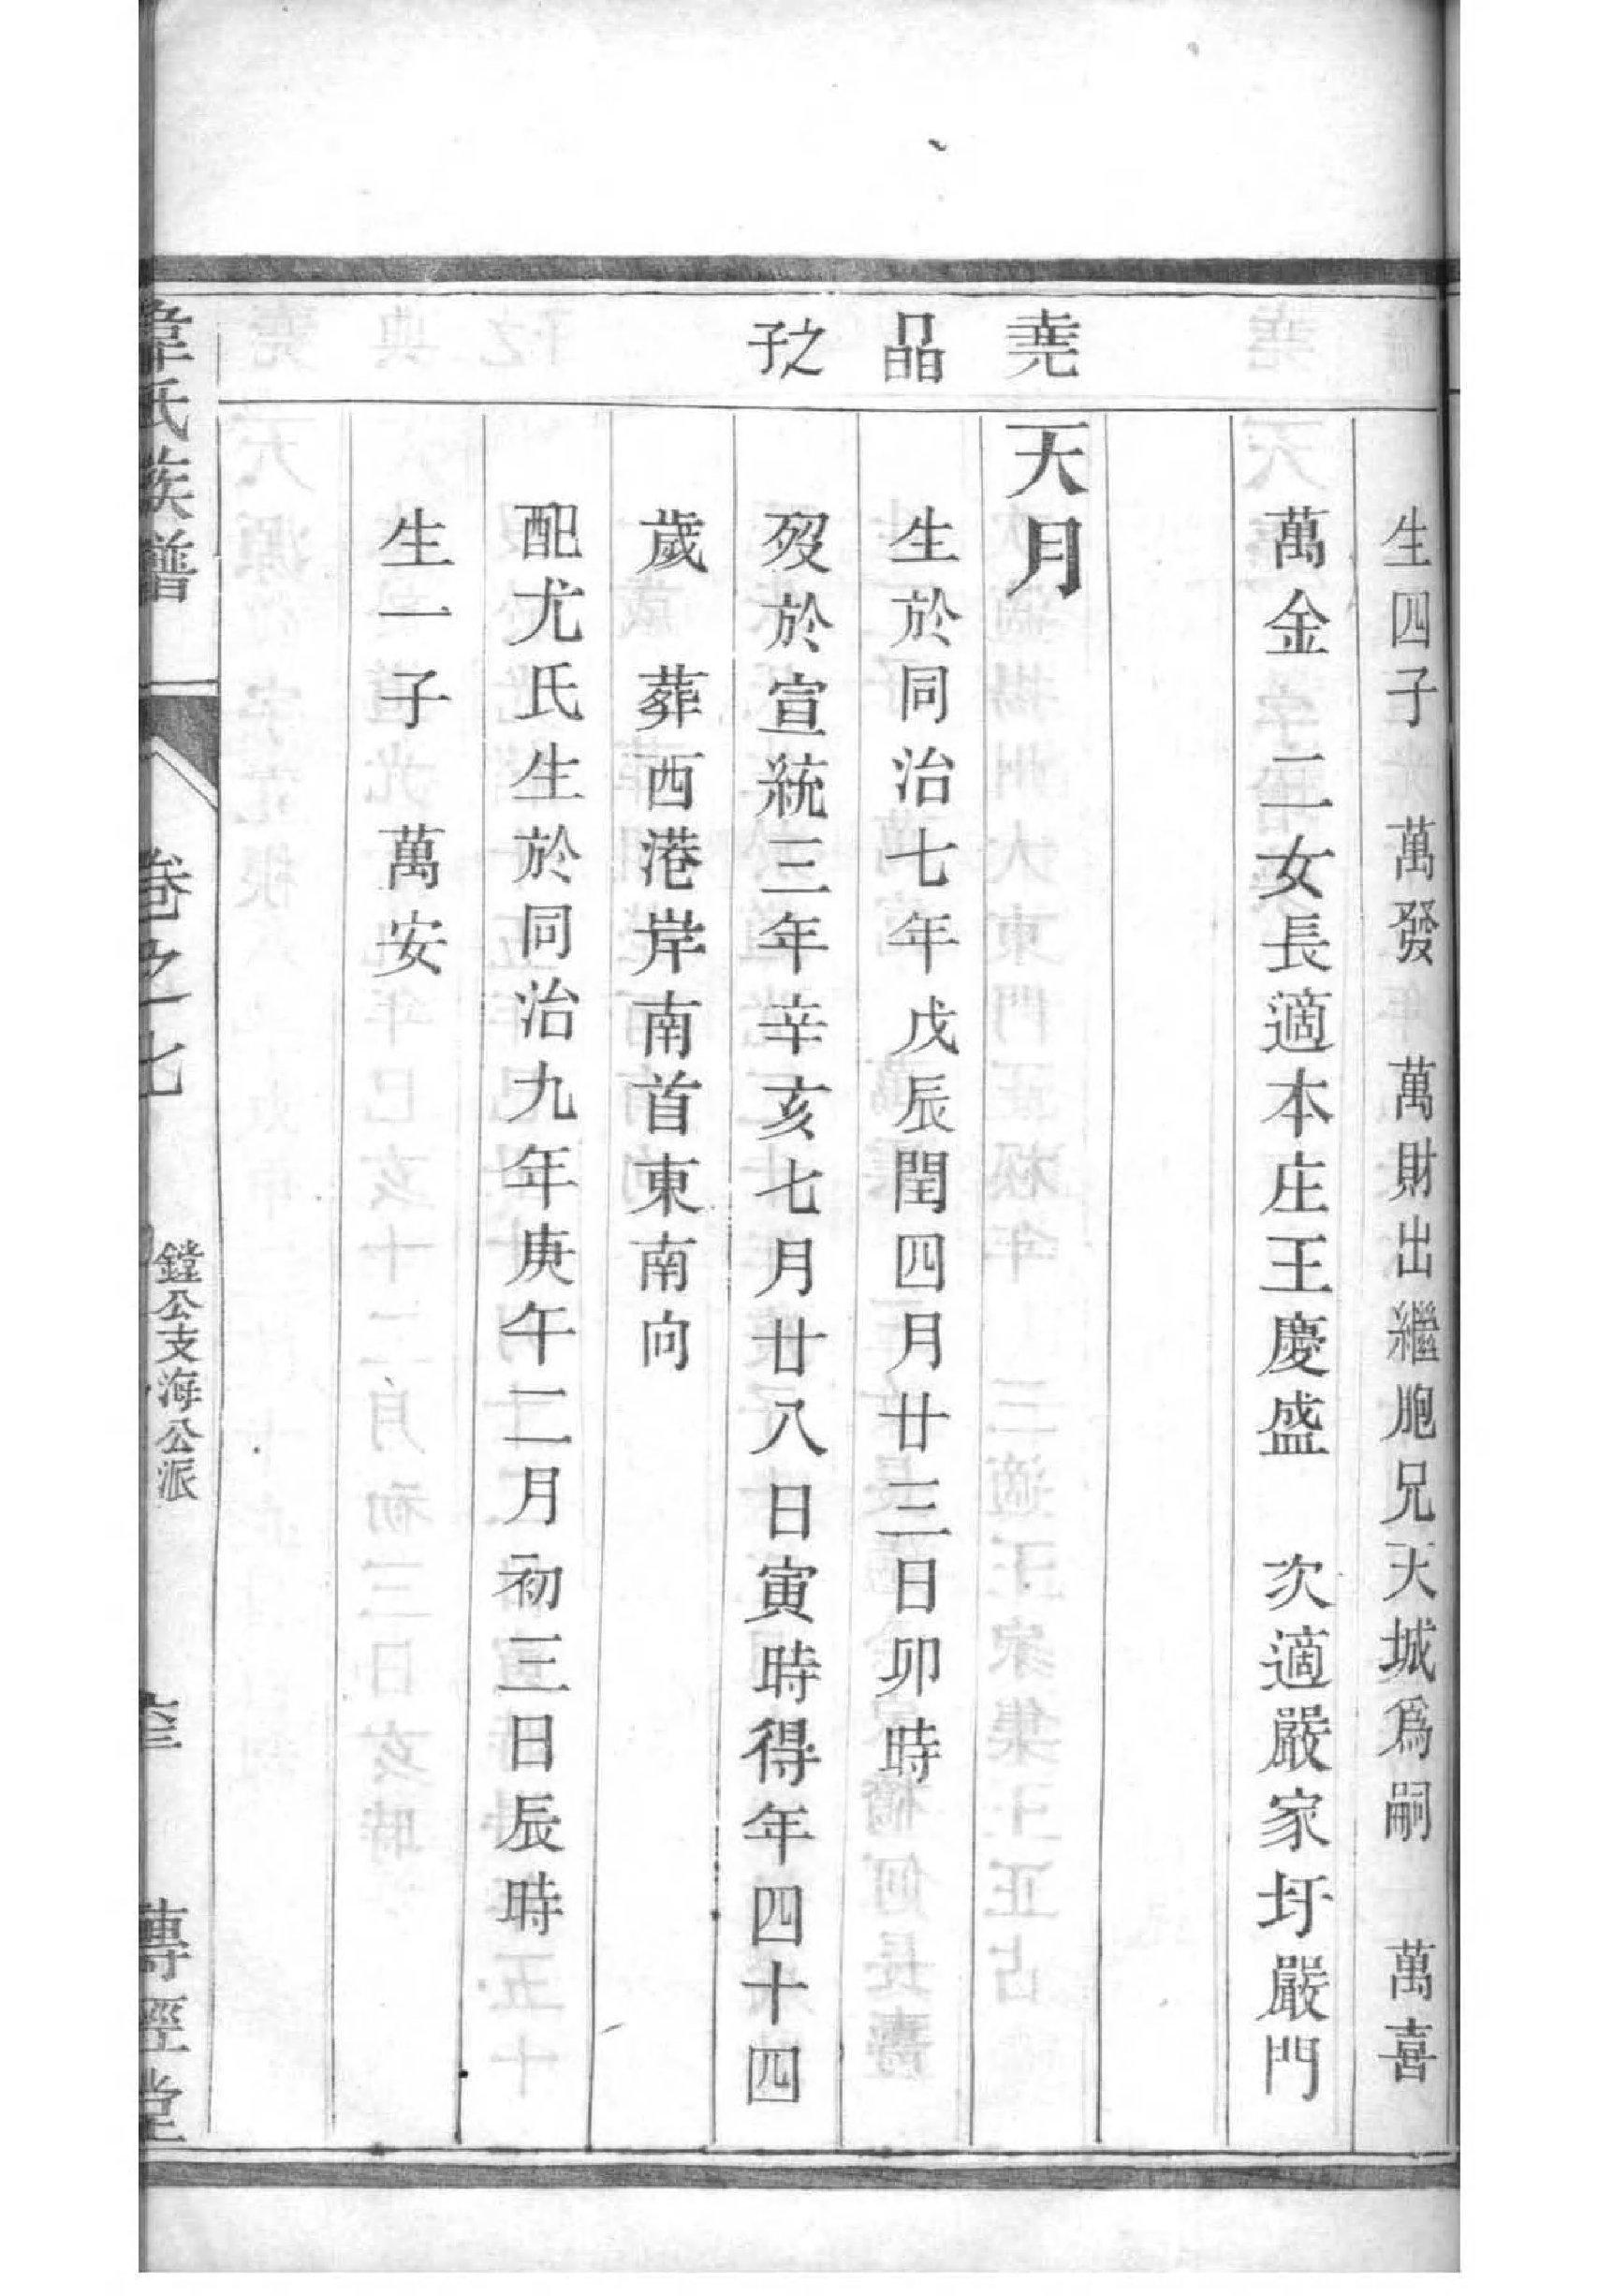 生四子 萬發 萬財出繼胞兄天城爲嗣 萬喜
萬金 二女長適本庄王慶盛 次適嚴家圩嚴門
堯晶之子
天月
生於同治七年戊辰閏四月廿三日卯時
歿於宣統三年辛亥七月廿八日寅時得年四十四
歲 葬西港岸南首東南向
配尤氏生於同治九年庚午二月初三日辰時
生一子 萬安
韋氏族譜 卷之七 鏜公支海公派 傳經堂